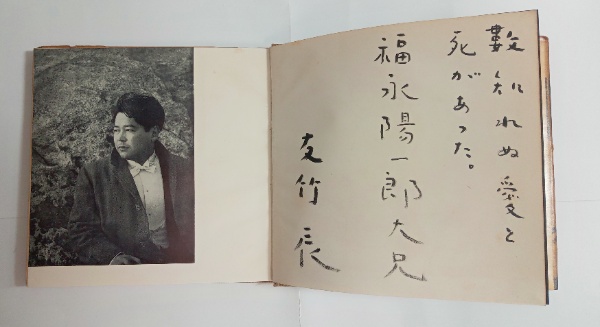 数知れぬ愛と
死があった。
福永陽一郎大兄
友竹辰